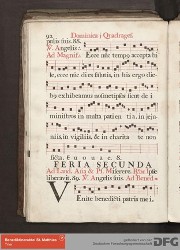 92 Dominica i Quadrages
℣. Angelis.
Ad Magnif. Ecce nūc tempꝰ accepta bi
le, ecce nūc dies salutis, in his ergo die
bꝰ exhibeamus nosmetipsos sicut de i
ministros in multa patien tia, in jeju
niis, in vigiliis, & in charita te non
ficta. E u o u a e. 8.
FERIA SECUNDA
Ad Laud. Ana & Ps. Miserere.
liberavit. 89. ℣. Angelis suis. Ad Bened.
Venite benedicti patris mei,
DFG